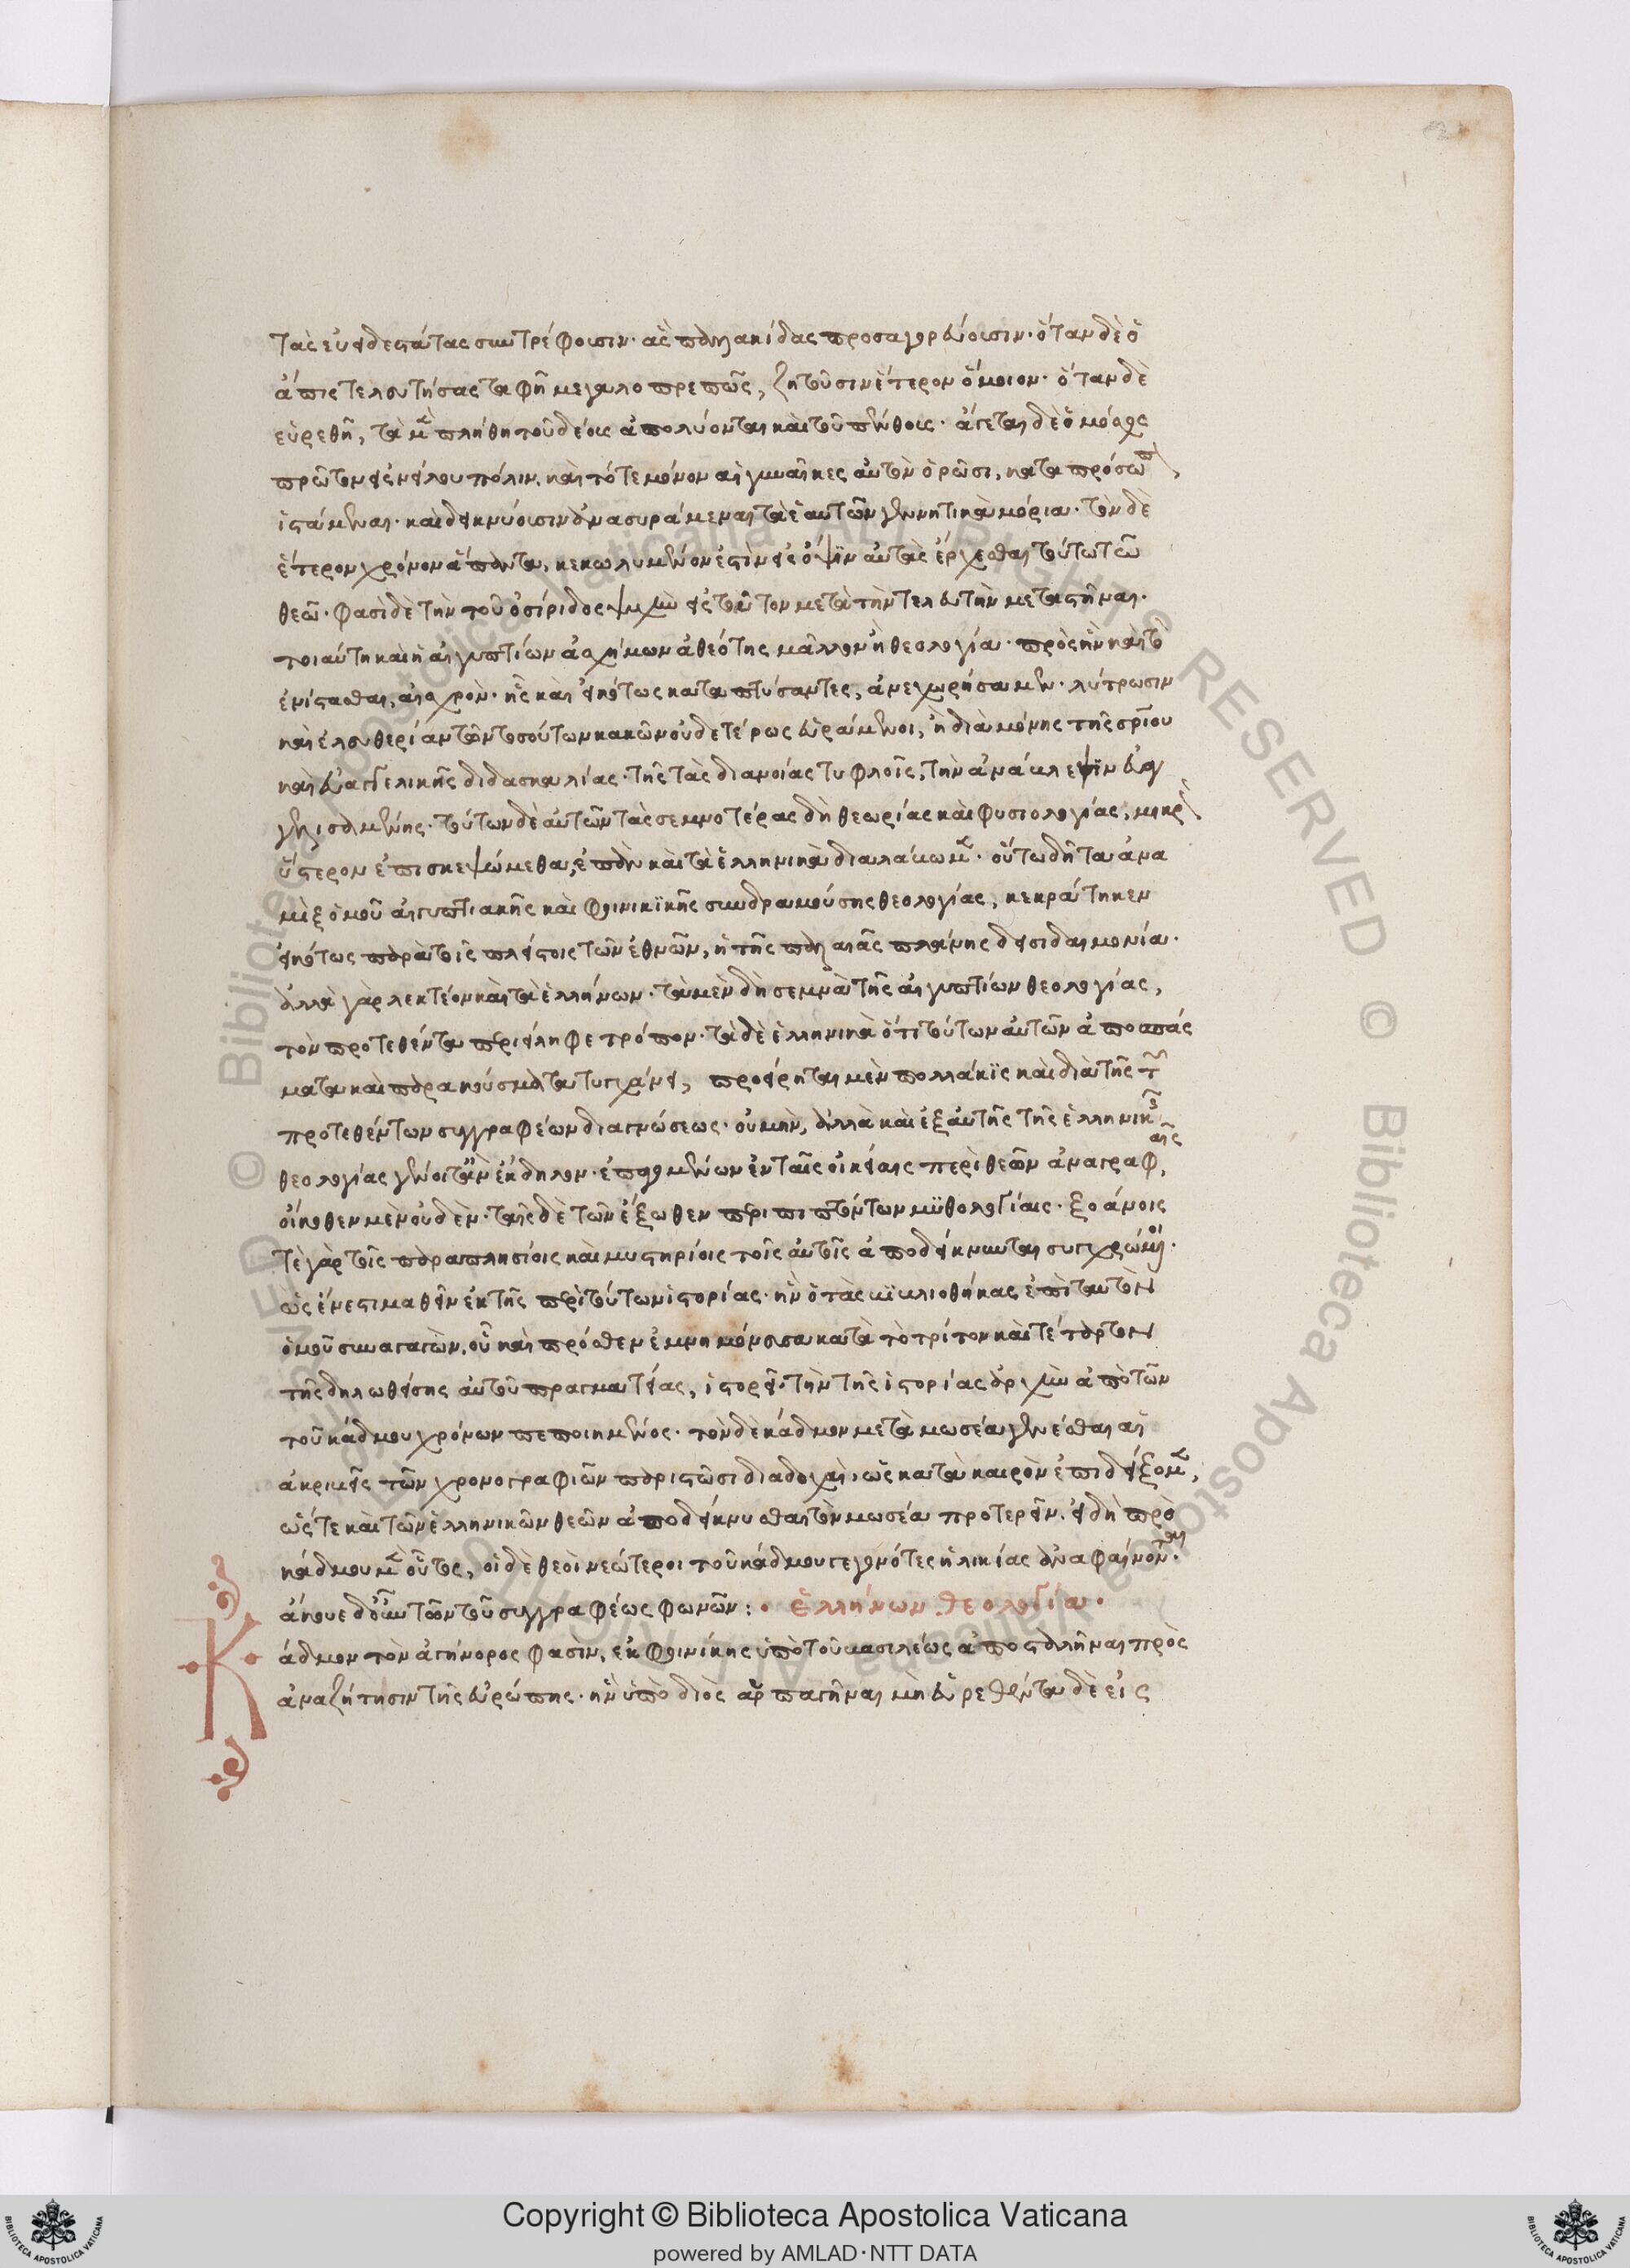 τὰς εὐειδεστάτας συντρέφουσιν· ἃς παλλακίδας προσαγορεύουσιν· ὅταν δὲ ὁ
ἄπις τελευτήσας ταφῆ μεγαλοπρεπῶς, ζητοῦσιν ἕτερον ὅμοιον· ὅταν δὲ
εὑρεθῆ, τὰ μὲν πλήθη τοῦ δέους ἀπολύονται καὶ τοῦ πένθους· ἄγεται δὲ ὁ μόσχος
πρῶτον εἰς νείλου πόλιν. καὶ τότε μόνον αἱ γυναῖκες αὐτὸν ὁρῶσι, κατα πρόσωπ
ἱστάμεναι· καὶ δεικνύουσιν ἀνασυράμεναι τὰ ἑαυτῶν γεννητικὰ μόρια· τὸν δὲ
ἕτερον χρόνον ἅπαντα, κεκωλυμένον ἐστὶν εἰς ὄψϊν αὐτὰς ἔρχεσθαι τούτω τῶ
θεῶ· φασὶ δὲ τὴν τοῦ ὀσίριδος ψυχὴν εἰς τοῦτον μετὰ τὴν τελευτὴν μεταστῆναι·
τοιαύτη καὶ ἡ αἰγυπτίων ἀσχήμων ἀθεότης μᾶλλον ἢ θεολογία· πρὸς ἣν καὶ τὸ
ἐνίστασθαι, αἰσχρὸν· ἧς καὶ εἰκότως καταπτύσαντες, ἀνεχωρήσαμεν· λύτρωσιν
καὶ ἐλευθερίαν τῶν τοσούτων κακῶν οὐδετέρως εὑράμενοι, ἢ διὰ μόνης τῆς σρίου
καὶ εὐαγγελικῆς διδασκαλίας· τῆς τὰς διανοίας τυφλοῖς, τὴν ἀνάβλεψϊν εὐαγ
γελισαμένης· τούτων δὲ αὐτῶν τὰς σεμνοτέρας δὴ θεωρίας καὶ φυσιολογίας, μικρ
ὕστερον ἐπισκεψώμεθα, ἐπὰν καὶ τὰ ἑλληνικὰ διαλάβωμεν· οὕτω δῆτα ἀνα
μὶξ ὁμοῦ αἰγυπτιακῆς καὶ φοινικϊκῆς συνδραμούσης θεολογίας, κεκράτηκεν
εἰκότως παρὰ τοῖς πλείστοις τῶν ἐθνῶν, ἡ τῆς παλαιᾶς πλάνης δεισιδαιμονία·
ἀλλὰ γὰρ λεκτέον καὶ τὰ ἑλλήνων· τὰ μὲν δὴ σεμνὰ τῆς αἰγυπτίων θεολογίας,
τὸν προτεθέντα περιείληφε τρόπον· τὰ δὲ ἑλληνικὰ ὅτι τούτων αὐτῶν ἀποσπάς
ματα καὶ παρακούσματα τυγχάνει, προείρηται μὲν πολλάκϊς καὶ διὰ τῆς τῶν
προτεθέντων συγγραφέων διαγνώσεως· οὐ μὴν, ἀλλὰ καὶ ἐξ αὐτῆς τῆς ἑλληνικῆς
θεολογίας γένοιτ' ἂν ἔκδηλον· ἐπαγομένων ἐν ταῖς οἰκείαις περὶ θεῶν ἀναγραφαῖς,
οἴκοθεν μὲν οὐδὲν· ταῖς δὲ τῶν ἔξωθεν περιπιπτόντων μϋθολογίαις· ξοάνοις
τὲ γὰρ τοῖς παραπλησίοις καὶ μυστηρίοις τοῖς αὐτοῖς ἀποδείκνυνται συγχρώμενοι·
ὡς ἔνεστι μαθεῖν ἐκ τῆς περὶ τούτων ἱστορίας· ἣν ὁ τὰς βϊβλιοθήκας ἐπὶ ταυτὸν
ὁμοῦ συναγαγὼν, οὗ καὶ πρόσθεν ἐμνημόνευσα κατὰ τὸ τρίτον καὶ τέταρτον
τῆς δηλωθείσης αὐτοῦ πραγματείας, ἱστορεῖ· τὴν τῆς ἱστορίας ἀρχὴν ἀπὸ τῶν
τοῦ κάδμου χρόνων πεποιημένος· τὸν δὲ κάδμον μετὰ μωσέα γενέσθαι αἱ
ἀκριβεῖς τῶν χρονογραφιῶν παριστῶσι διαδοχαὶ, ὡς κατὰ καιρὸν ἐπιδείξομεν,
ὥστε καὶ τῶν ἑλληνικῶν θεῶν ἀποδείκνυσθαι τὸν μωσέα προτερεῖν. εἰ δὴ πρὸ
κάδμου μὲν οὗτος, οἱ δὲ θεοὶ νεώτεροι τοῦ κάδμου γεγονότες ἡλικίας ἀναφαίνονται·
ἄκουε δ' οὖν τῶν τοῦ συγγραφέως φωνῶν : · Ἑλλήνων θεολογία ·
Κάδμον τὸν ἀγήνορος φασὶν, ἐκ φοινίκης ὑπὸ τοῦ βασιλέως ἀποσταλῆναι πρὸς
ἀναζήτησιν τῆς εὐρώπης· ἣν ὑπὸ διὸς ἁρπαγῆναι μὴ εὑρεθέντα δὲ εἰς